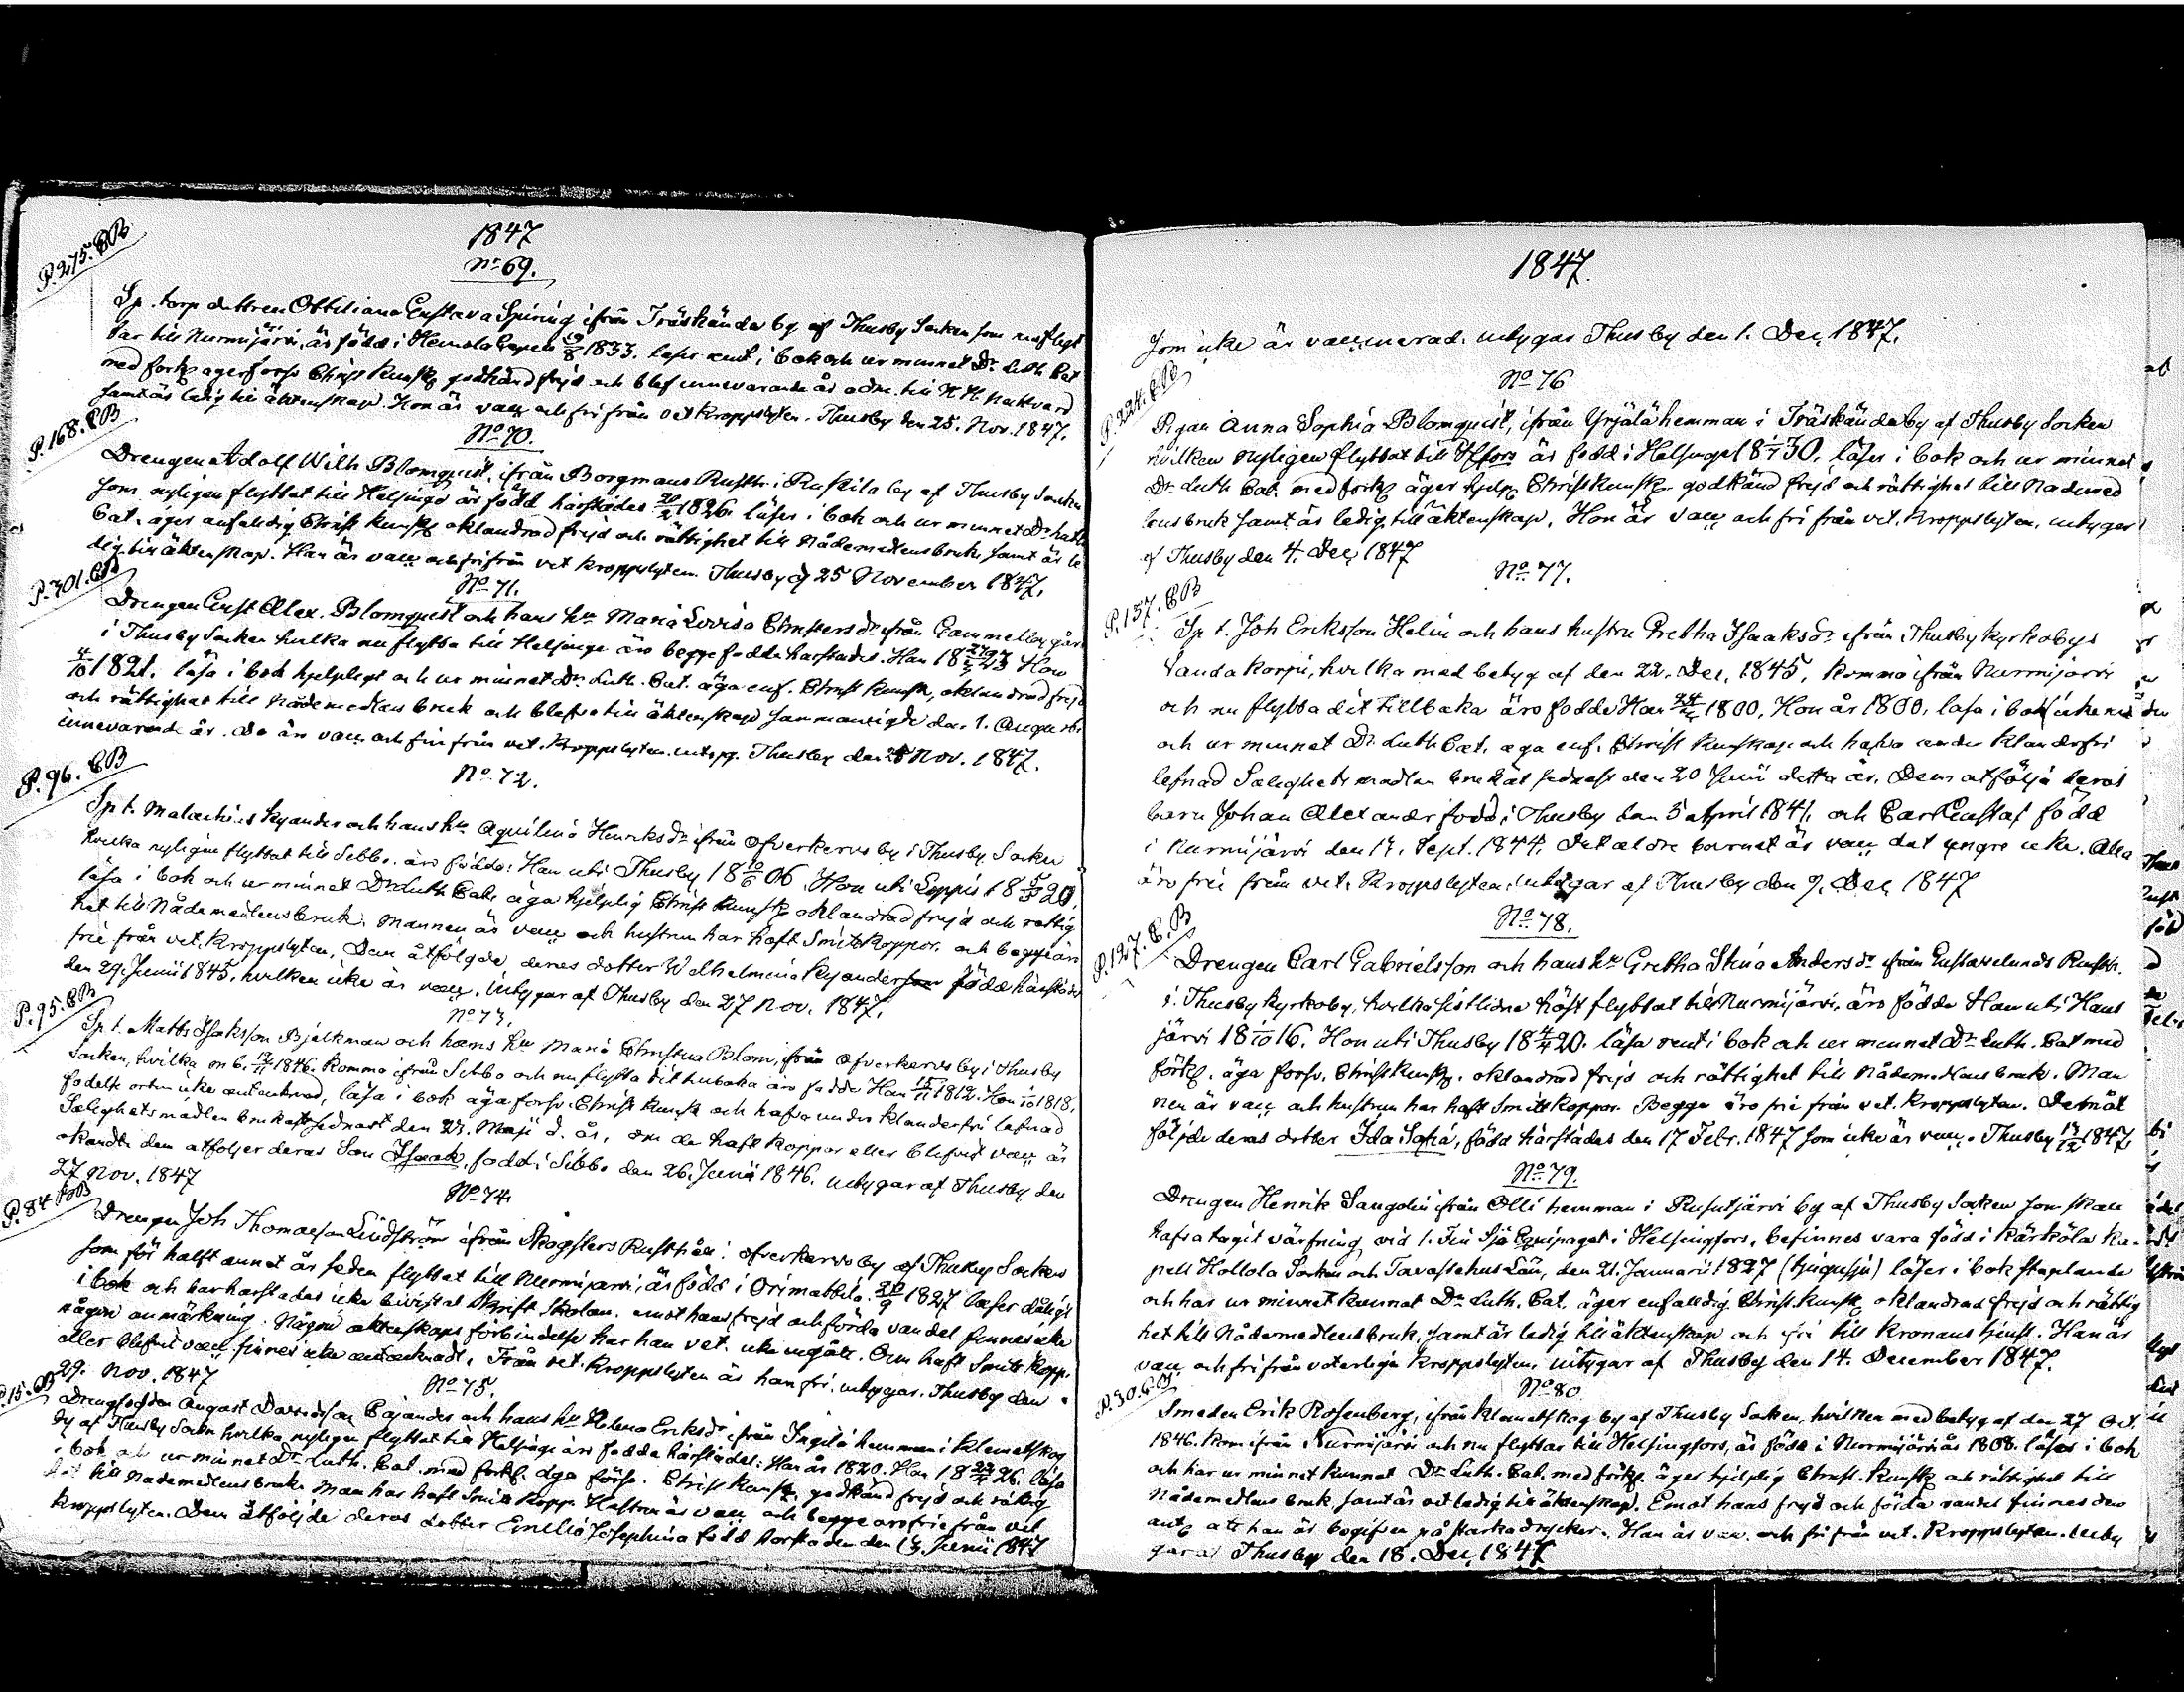 1847
No 69.
P. 275. CB
Sp. torp dottren Ottiliana Gustava Spiring ifrån Träskända by af Thusby Socken som nu flyt
tar till Nurmijärvi, är född i Hemola 19/8 1833. läser rent i bok och ur minnet Dr. Luth Cat
med förkl äger förso Christ kunsk godkänd frejd och blef innevarande år adm. till H. H. Nattvard
samt är ledig till äktenskap. Hon är vacc och fri från vet kroppslyten. Thusby den 25. Nov. 1847.
P. 168. CB
No 70.
Drengen Adolf Wilh Blomquist, ifrån Borgmans Rusth. i Ruskila by af Thusby Socken
som nyligen flyttat till Helsinge är född härstädes 20/2 1826. läser i bok och ur minnet Dr Luth
Cat. äger enfaldig Christ kunsk oklandrad frejd och rättighet till Nådemedlens bruk, samt är le
dig till äktenskap. Han är vacc och fri från vet kroppslyten. Thusby d 25 November 1847.
P. 301. CB
No 71.
Drengen Gust Alex. Blomquist och hans hu Maria Lovisa Christersdr ifrån Gammelby gård
i Thusby Socken hvilka nu flytta till Helsinge äro begge födda härstädes. Han 18 23 Hon
4/10 1821. läsa i bok hjelpligt och ur minnet Dr. Luth. Cat. äga enf. Christ kunsk, oklandrad frejd
och rättighet till Nådemedlens bruk och blefvo till äktenskap sammanvigde den 1. Augusti
innevarande år. De äro vacc och fri från vet. kroppslyten. intyg. Thusby den 25 Nov. 1847.
P. 96. CB
No 72.
Sp t. Malachias Kyander och hans hu Aquilina Henriksdr ifrån Ofverkervo by i Thusby Socken
hvilka nyligen flyttat till Sibbo. äro födde: Han uti Thusby 18 /6 06 Hon uti Loppis 18 5/3 20,
läsa i bok och ur minnet Dr Luth Cat. äga hjelplig Christ kunsk oklandrad frejd och rättig
het till Nådemedlens bruk. Mannen är vacc och hustrun har haft Smittkoppor. och begge äro
frie från vet. kroppslyten. Dem åtfölgde deras dotter Wilhelmina Kyander född härstädes
den 29. Junii 1845. hvilken icke är vacc. intygar af Thusby den 27 Nov. 1847.
P. 95. CB
No 73.
Sp t. Matts Isaksson Bjelkman och hans hu Maria Christina Blom, ifrån Ofverkervo by i Thusby
Socken, hvilka m b. 1846. komma ifrån Sibbo och nu flytta dit tillbaka äro födde Han 1812. Hon /10 1818.
födelse orten icke antecknad, läsa i bok äga förso Christ kunsk och hafva under klanderfri lefnad
Salighets mädlen brukat sednast den 23. Maji d. år, om de haft koppor eller blifvit vacc är
okändt. dem åtföljer deras Son Isaak, född i Sibbo den 26. Junii 1846. intygar af Thusby den
27 Nov. 1847
P. 84 CB
No 74
Drengen Joh Thomasson Lindström ifrån Skogsters Rusthåll i Ofverkervo by af Thusby Socken
som för halft annat år sedan flyttat till Nurmijärvi, är född i Orimattila 29/9 1827 läser dåligt
i bok och har härstädes icke bivistat Skrift skolan. emot hans frejd och förda vandel finnes icke
någon anmärkning. Någon äktenskaps förbindelse har han vet. icke ingått. Om haft Smitt kopp.
eller blifvit vacc. finnes icke antecknadt. Från vet. kroppslyten är han fri. intygar. Thusby den
29. Nov. 1847
P. 15. CB
No 75.
August Davidsson Cajander och hans hu Helena Eriksdr ifrån Ingilä hemman i Klemetskog
by af Thusby Socken hvilka nyligen flyttat till Helsinge äro födda härstädes: Han år 1820. Hon 18 26. läsa
i bok och ur minnet Dr. Luth. Cat. med förkl. äga förso. Christ kunsk godkänd frejd och rättig
het till Nådemedlens bruk. Man har haft Smitt kopp. Hustrun är vacc och begge äro frie från vet
kroppslyten. Dem åtföljde deras dotter Emelia Josephina född härstädes den 13. Junii 1847
1847.
som icke är vaccinerad. intygar Thusby den 1. Dec 1847.
No 76
P. 224. CB
Pigan Anna Sophia Blomquist, ifrån Yrjälä hemman i Träskända by af Thusby Socken
hvilken nyligen flyttat till Hfors är född i Helsinge 18 30, läser i bok och ur minnet
Dr. Luth Cat. med förkl äger hjelp Christ kunsk godkänd frejd och rättighet till Nådemed
lens bruk samt är ledig till äktenskap. Hon är vacc och fri från vet. kroppslyten, intygar
af Thusby den 4. Dec 1847
No 77.
P. 157. CB
Sp t. Joh Eriksson Helin och hans hustru Gretha Isaaksdr ifrån Thusby Kyrkobys
Landa korpi, hvilka med betyg af den 22. Dec. 1845, komma ifrån Nurmijärvi
och nu flytta dit tillbaka äro födde Han 1800, Hon år 1800, läsa i bok
och ur minnet Dr. Luth Cat. äga enf. Christ kunskap och hafva under klanderfri
lefnad Salighets medlen brukat sednast den 20 Junii detta år. Dem åtfölja deras
barn Johan Alexander född i Thusby den 5 April 1841. och Carl Gustaf född
i Nurmijärvi den 17. Sept. 1844. Det äldre barnet är vacc det yngre icke. Alla
äro frie från vet. kroppslyten. intygar af Thusby den 9. Dec 1847
No 78.
P. 127. CB
Drengen Carl Gabrielsson och hans hu Gretha Stina Andersdr ifrån Gustavelunds Rusth.
i Thusby Kyrkoby, hvilka sistlidne höst flyttat till Nurmijärvi, äro födda Han uti Haus
järvi 18 /10 16. Hon uti Thusby 18 4/4 20. läsa rent i bok och ur minnet Dr Luth. Cat med
förkl. äga förso. Christ kunsk. oklandrad frejd och rättighet till Nådemedlens bruk. Man
nen är vacc och hustrun har haft Smittkoppor. Begge äro frie från vet. kroppslyten. Dem åt
följde deras dotter Ida Sofia, född härstädes den 17 Febr. 1847 som icke är vacc. Thusby 13/12 1847
No 79.
Drengen Henrik Sangelin ifrån Olli hemman i Rusutjärvi by af Thusby Socken som skall
hafva tagit värfning vid 1. Fin Sjö Equipaget i Helsingfors, befinnes vara född i Kärköla Ka-
pell Hollola Socken och Tavastehus Län, den 21. Januarii 1827 (tjugusju) läser i bok staplande
och har ur minnet kunnat Dr. Luth. Cat. äger enfaldig Christ. kunsk oklandrad frejd och rättig
het till Nådemedlens bruk, samt är ledig till äktenskap och fri till Kronans tjenst. Han är
vacc och fri från veterliga kroppslyten, intygar af Thusby den 14. December 1847.
No 80
P. 30. CB.
Smeden Erik Rosenberg, ifrån Klemetskog by af Thusby Socken, hvilken med betyg af den 27 Oct.
1846. kom ifrån Nurmijärvi och nu flyttar till Helsingfors, är född i Nurmijärvi år 1808. läser i bok
och har ur minnet kunnat Dr. Luth. Cat. med förkl. äger hjelplig Christ. kunsk och rättighet till
Nådemedlens bruk samt är vet ledig till äktenskap. Emot hans frejd och förda vandel finnes den
ant att han är begifven på starka drycker. Han är vacc. och fri från vet. kroppslyten. intyg
gar af Thusby den 18. Dec 1847